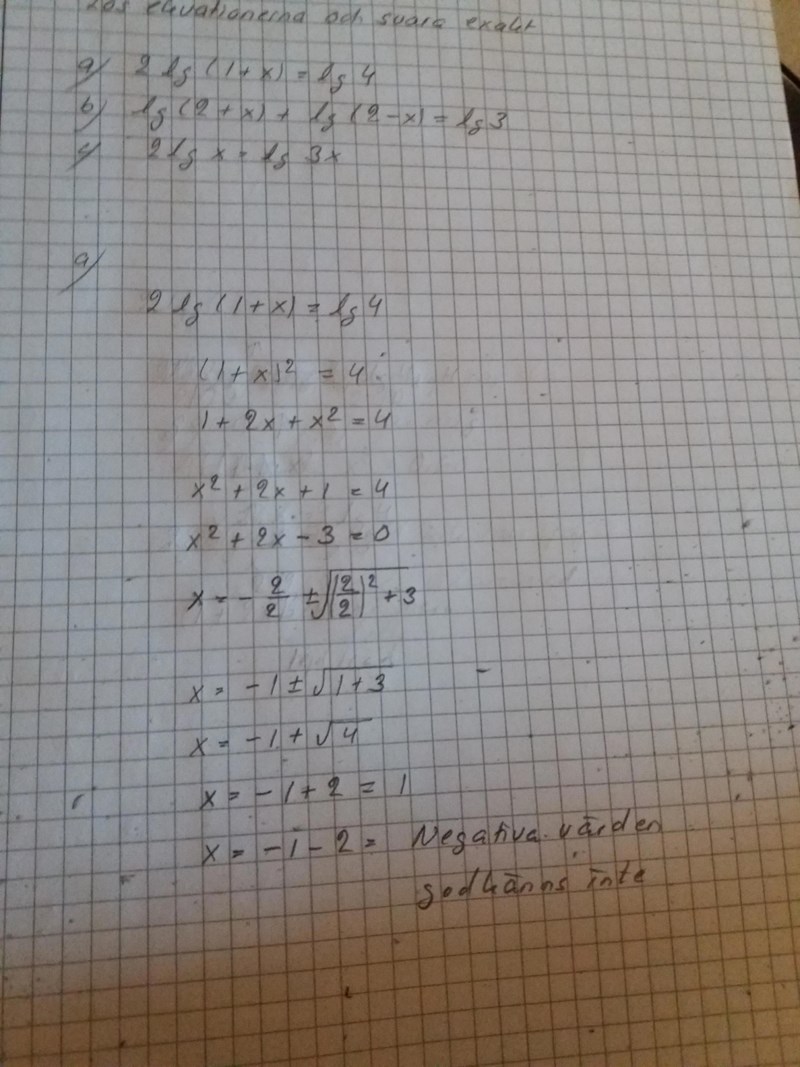 Lös ekvationerna och svara exakt
a) 2 lg (1+x) = lg 4
b) lg (2+x) + lg (2-x) = lg 3
c) 2 lg x = lg 3x
a)
2 lg (1+x) = lg 4
(1+x)² = 4
1 + 2x + x² = 4
x² + 2x + 1 = 4
x² + 2x - 3 = 0
x = - 2/2 ± √(2/2)² + 3
x = -1 ± √1+3
x = -1 + √4
x = -1 + 2 = 1
x = -1 - 2 = Negativa värden
godkänns inte